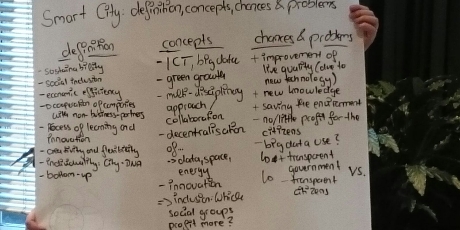 Smart City: definition, concepts, chances & problems
definition
- sustainability
- social inclusion
- economic efficiency
- cooperation of companies
with non-business-partners
- Process of learning and
innovation
- creativity and flexibility
- individuality: City-DNA
- bottom-up
concepts
- ICT, big data
- green growth
- multi-disciplinary
approach/
collaboration
- decentralisation
of...
→ data, space,
energy
- innovation
=> inclusion: which
social groups
profit more?
chances & problems
+ improvement of
live quality (due to
new technology)
+ new knowledge
+ saving the environment
- no/little profit for the
citizens
- big data use?
+ transparent
government
vs.
- transparent
citizens